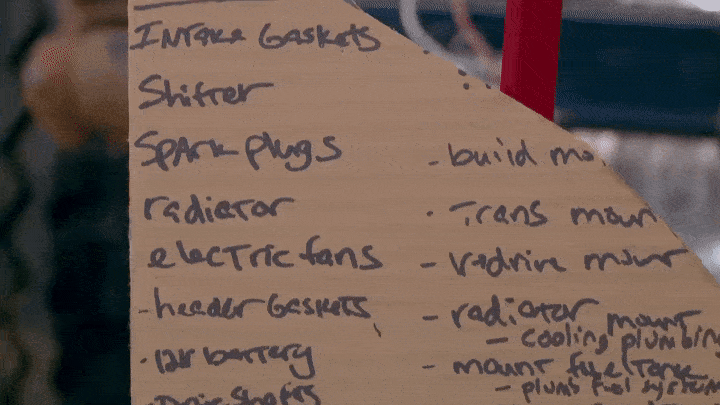 Intake Gaskets
Shifter
Spark plugs
radiator
electric fans
- header Gaskets
· 12v battery
- build
· Trans moun
- v-drive mount
- radiator mount
- cooling plumbing
- mount fuel tank
- plumb fuel system